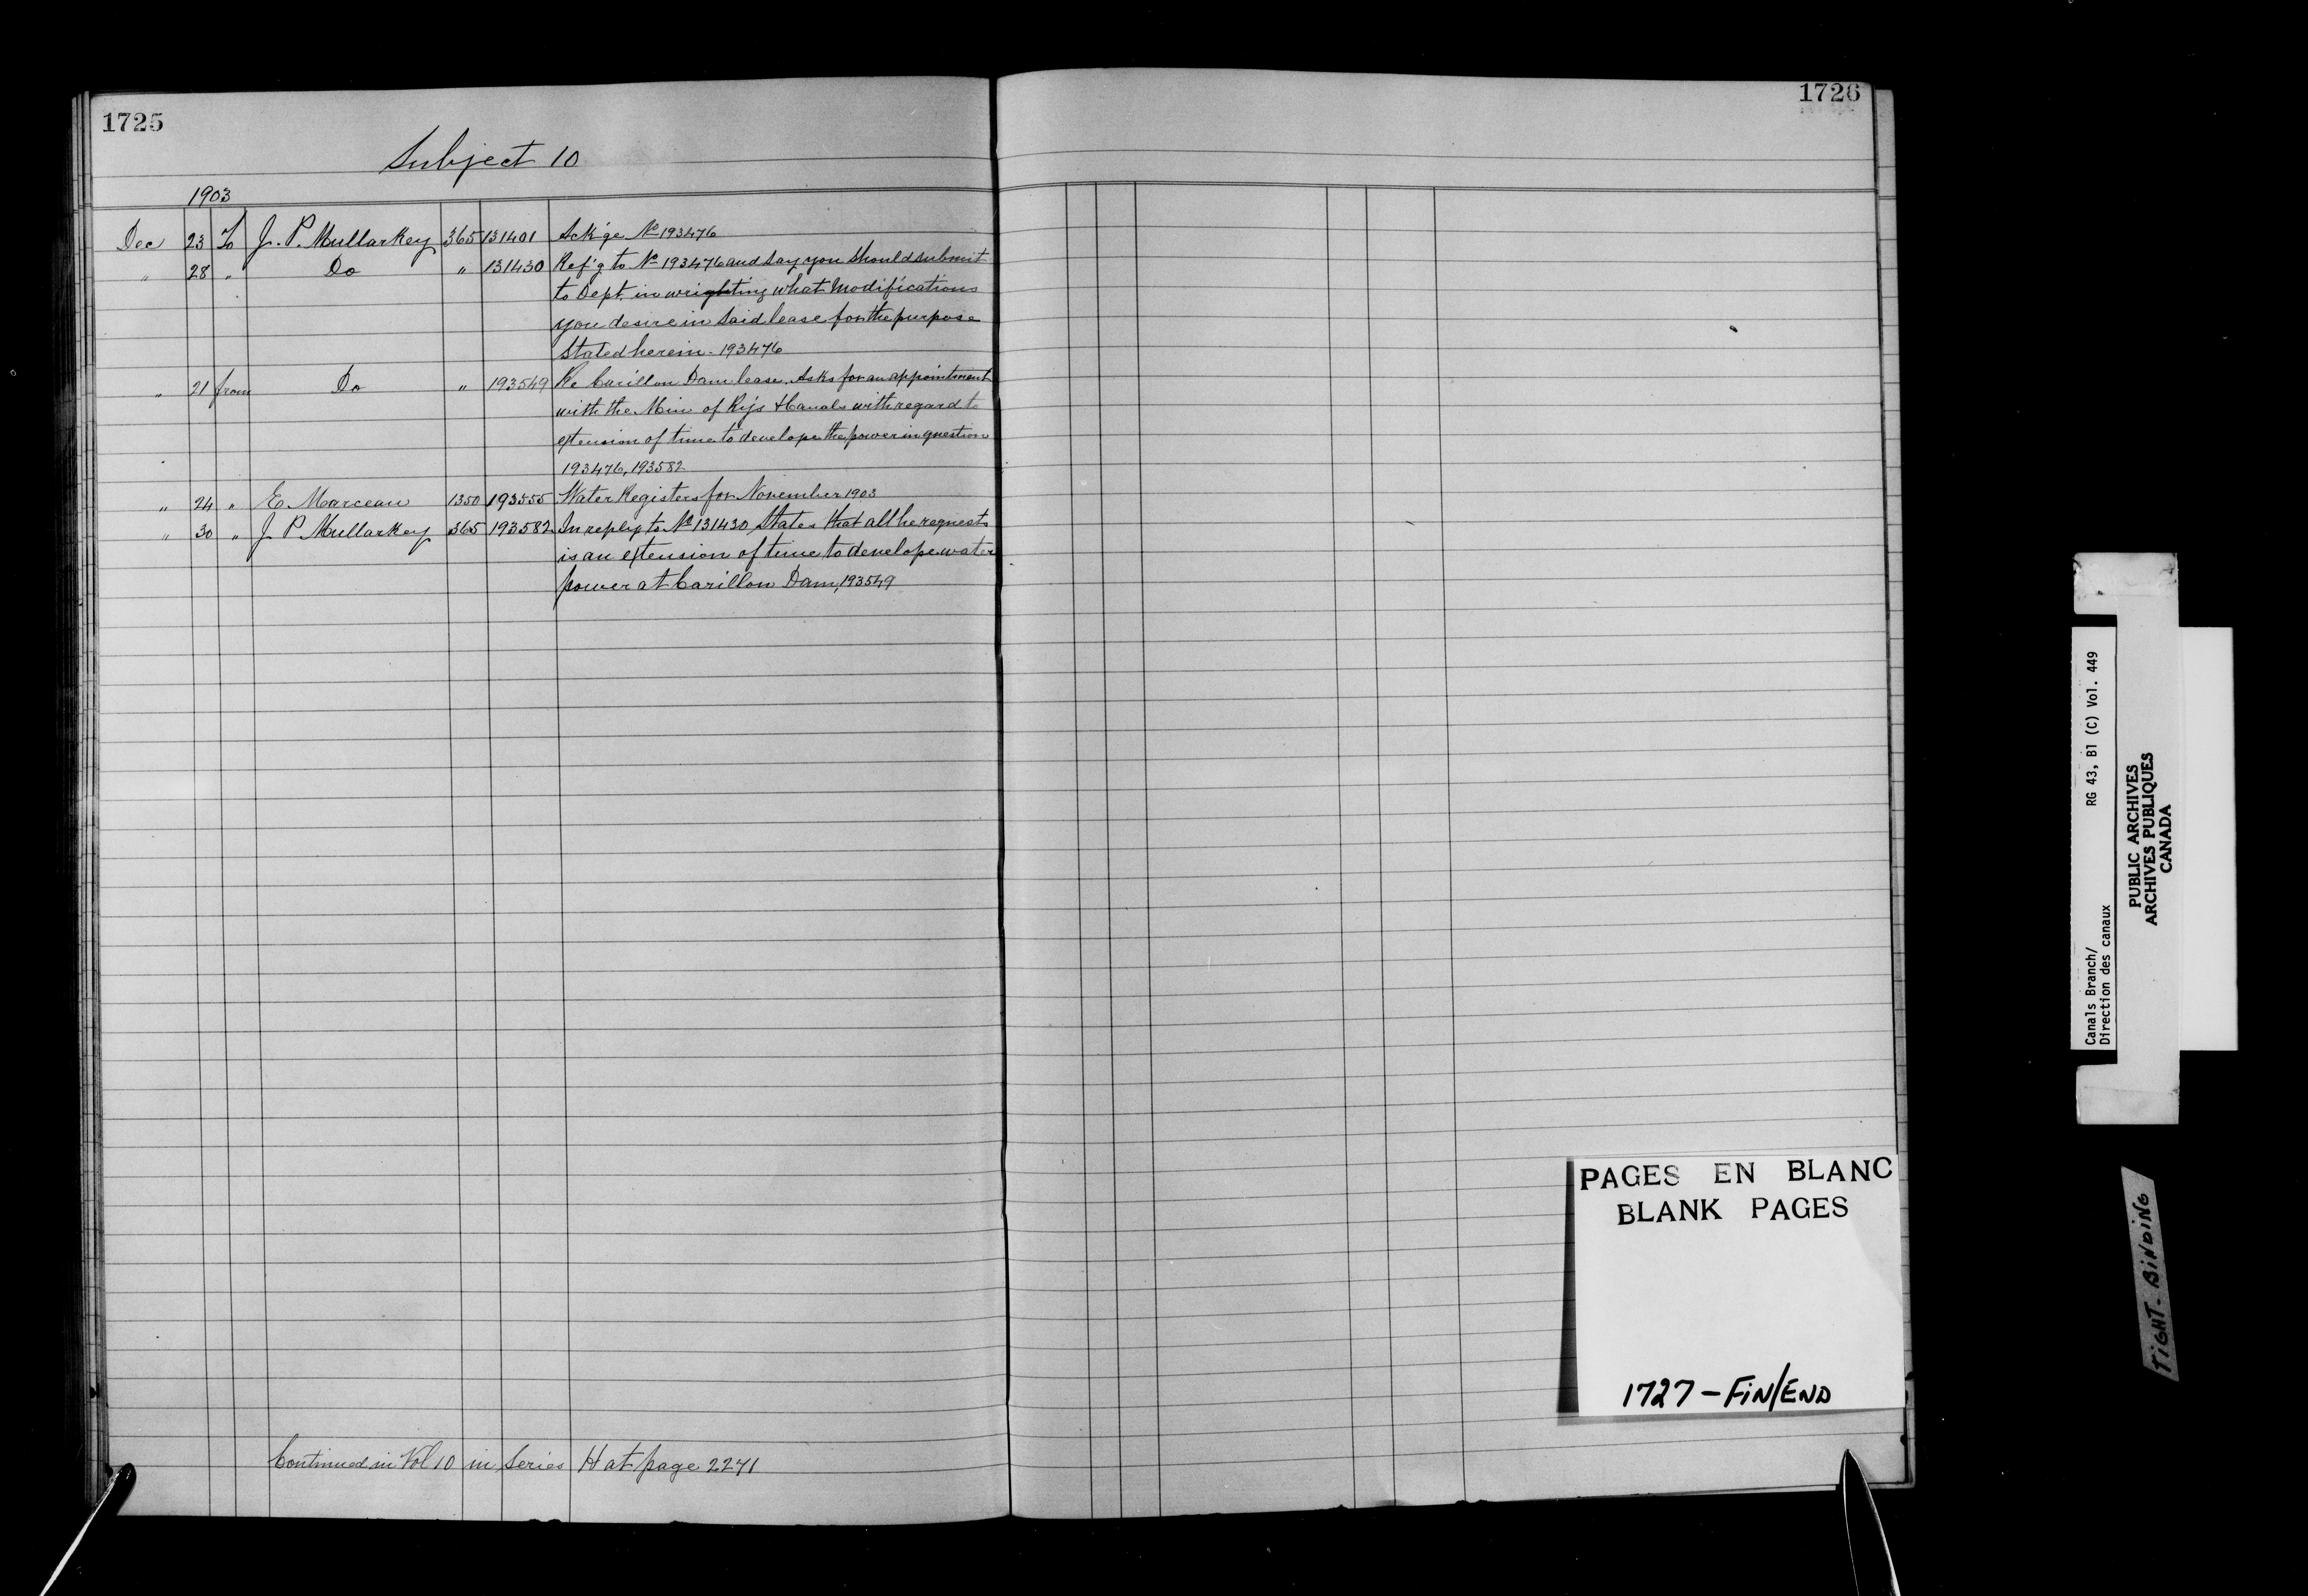 1725
Subject 10
1903
Dec 23 To J. P. Mullarkey 365 131401 Ack'ge No 193476
" 28 " Do " 131430 Ref'g to No 193476 and say you should submit
to Dept. in wrighting what modifications
you desire in said lease for the purpose
stated herein - 193476
" 21 from Do " 193549 Re Carillon Dam lease. Asks for an appointment
with the Min of Rys & Canals with regard to
extension of time to develope the power in question
193476, 193582
" 24 " E. Marceau 1350 193555 Water Registers for November 1903
" 30 " J P Mullarkey 365 193582 In reply to No 131430 States that all he requests
is an extension of time to develope water
power at Carillon Dam, 193549
Continued in Vol 10 in Series H at page 2271
1726
PAGES EN BLANC
BLANK PAGES
1727 - FIN/END
Canals Branch/ RG 43, B1 (C) Vol. 449
Direction des canaux
PUBLIC ARCHIVES
ARCHIVES PUBLIQUES
CANADA
TIGHT-BINDING